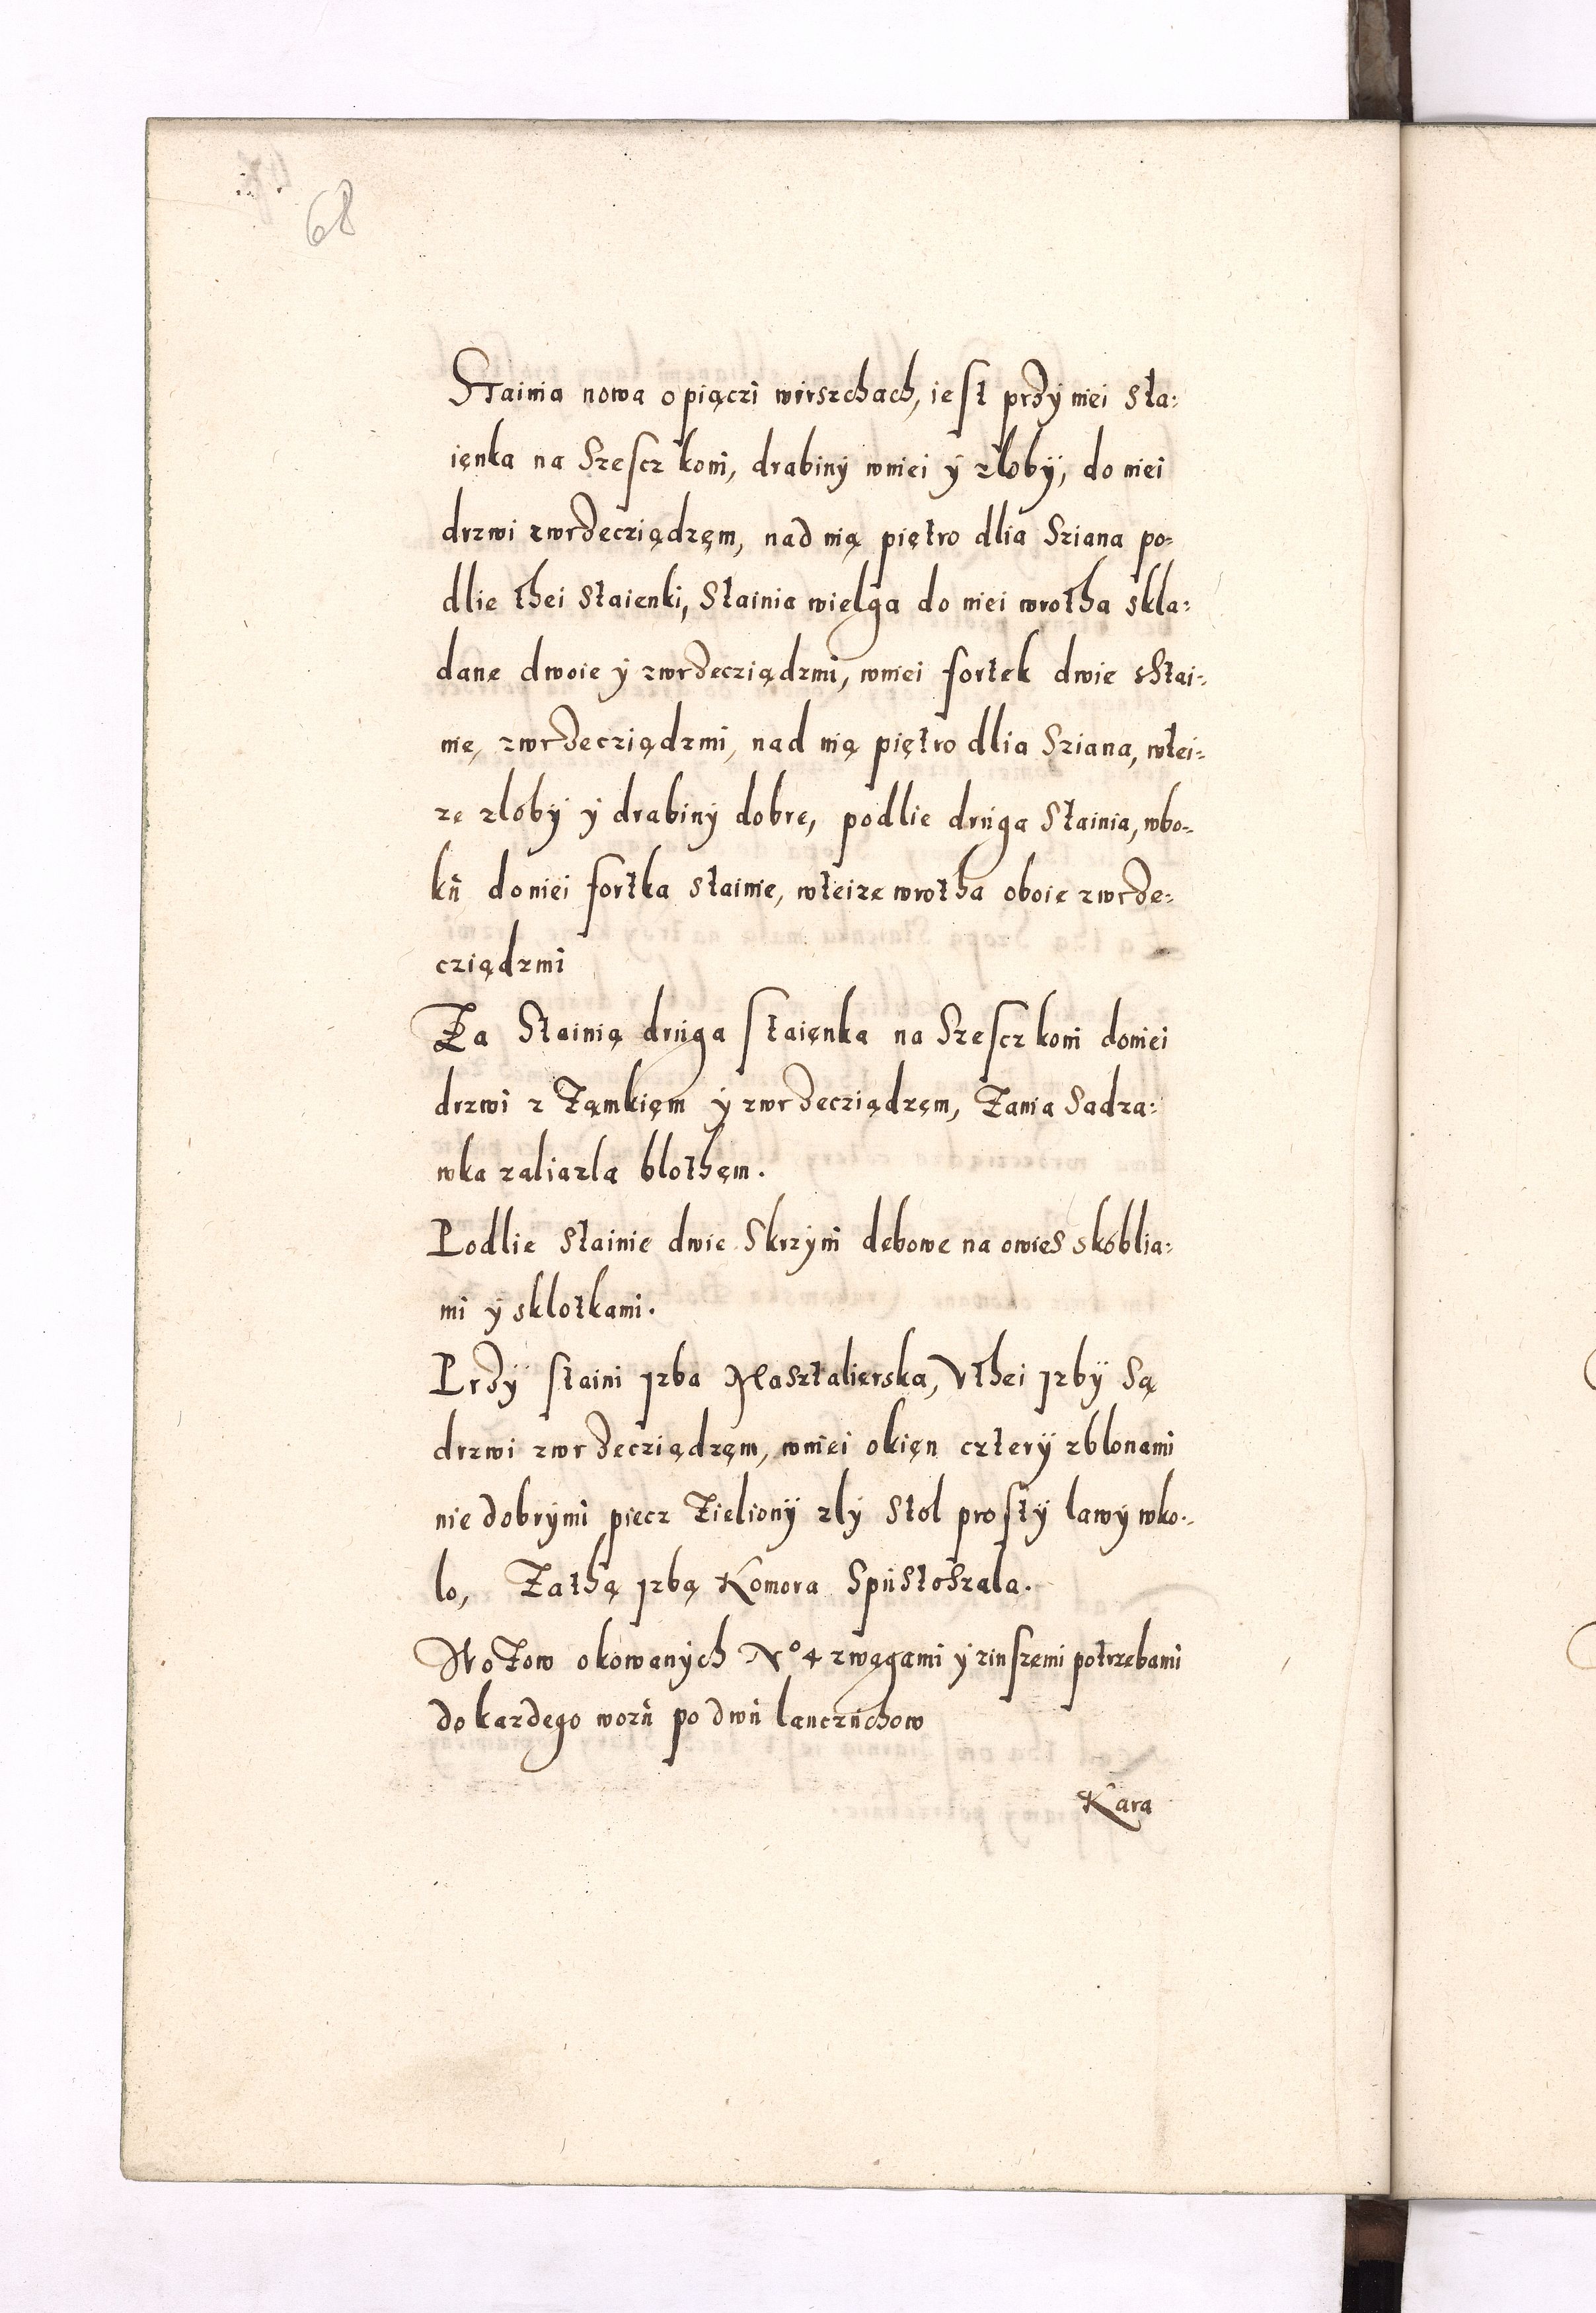 68
Stainia nowa o piączi wirszchach, iest przÿ niei sta:
ięnka na Szescz koni, drabinÿ wniei ÿ zlobÿ, do niei
drzwi zwrzecziądzęm, nad nią piętro dlia Sziana po:
dlie thei staienki, Stainia wielga do niei wrotha skla:
dane dwoie ÿ zwrzecziądzmi, wniei fortek dwie s Stai:
nię, zwrzecziądzmi, nad nią piętro dlia Sziana, wtei:
ze zlobÿ ÿ drabinÿ dobre, podlie druga Stainia, wbo:
ku do niei fortka stainie, wteize wrotha oboie zwrze:
cziądzmi
Za Stainią druga staięnka na Szescz koni doniei
drzwi z Zamkięm ÿ zwrzecziądzęm, Zania Sadza:
wka zaliazla blothęm.
Podlie stainie dwie Skrzÿni debowe na owies skóblia:
mi ÿ sklotkami.
Przÿ staini Izba Masztalierska, V thei Izbÿ Są
drzwi zwrzecziądzęm, wniei okięn czterÿ zblonami
nie dobrÿmi piecz Zielionÿ zlÿ Stol prostÿ lawÿ wko:
lo, Zathą Izbą Komora Spustoszala.
Wozow okowanÿch No 4 zwągami ÿ zinszemi potrzebami
do kazdego wozu po dwu lanczuchow
Kara